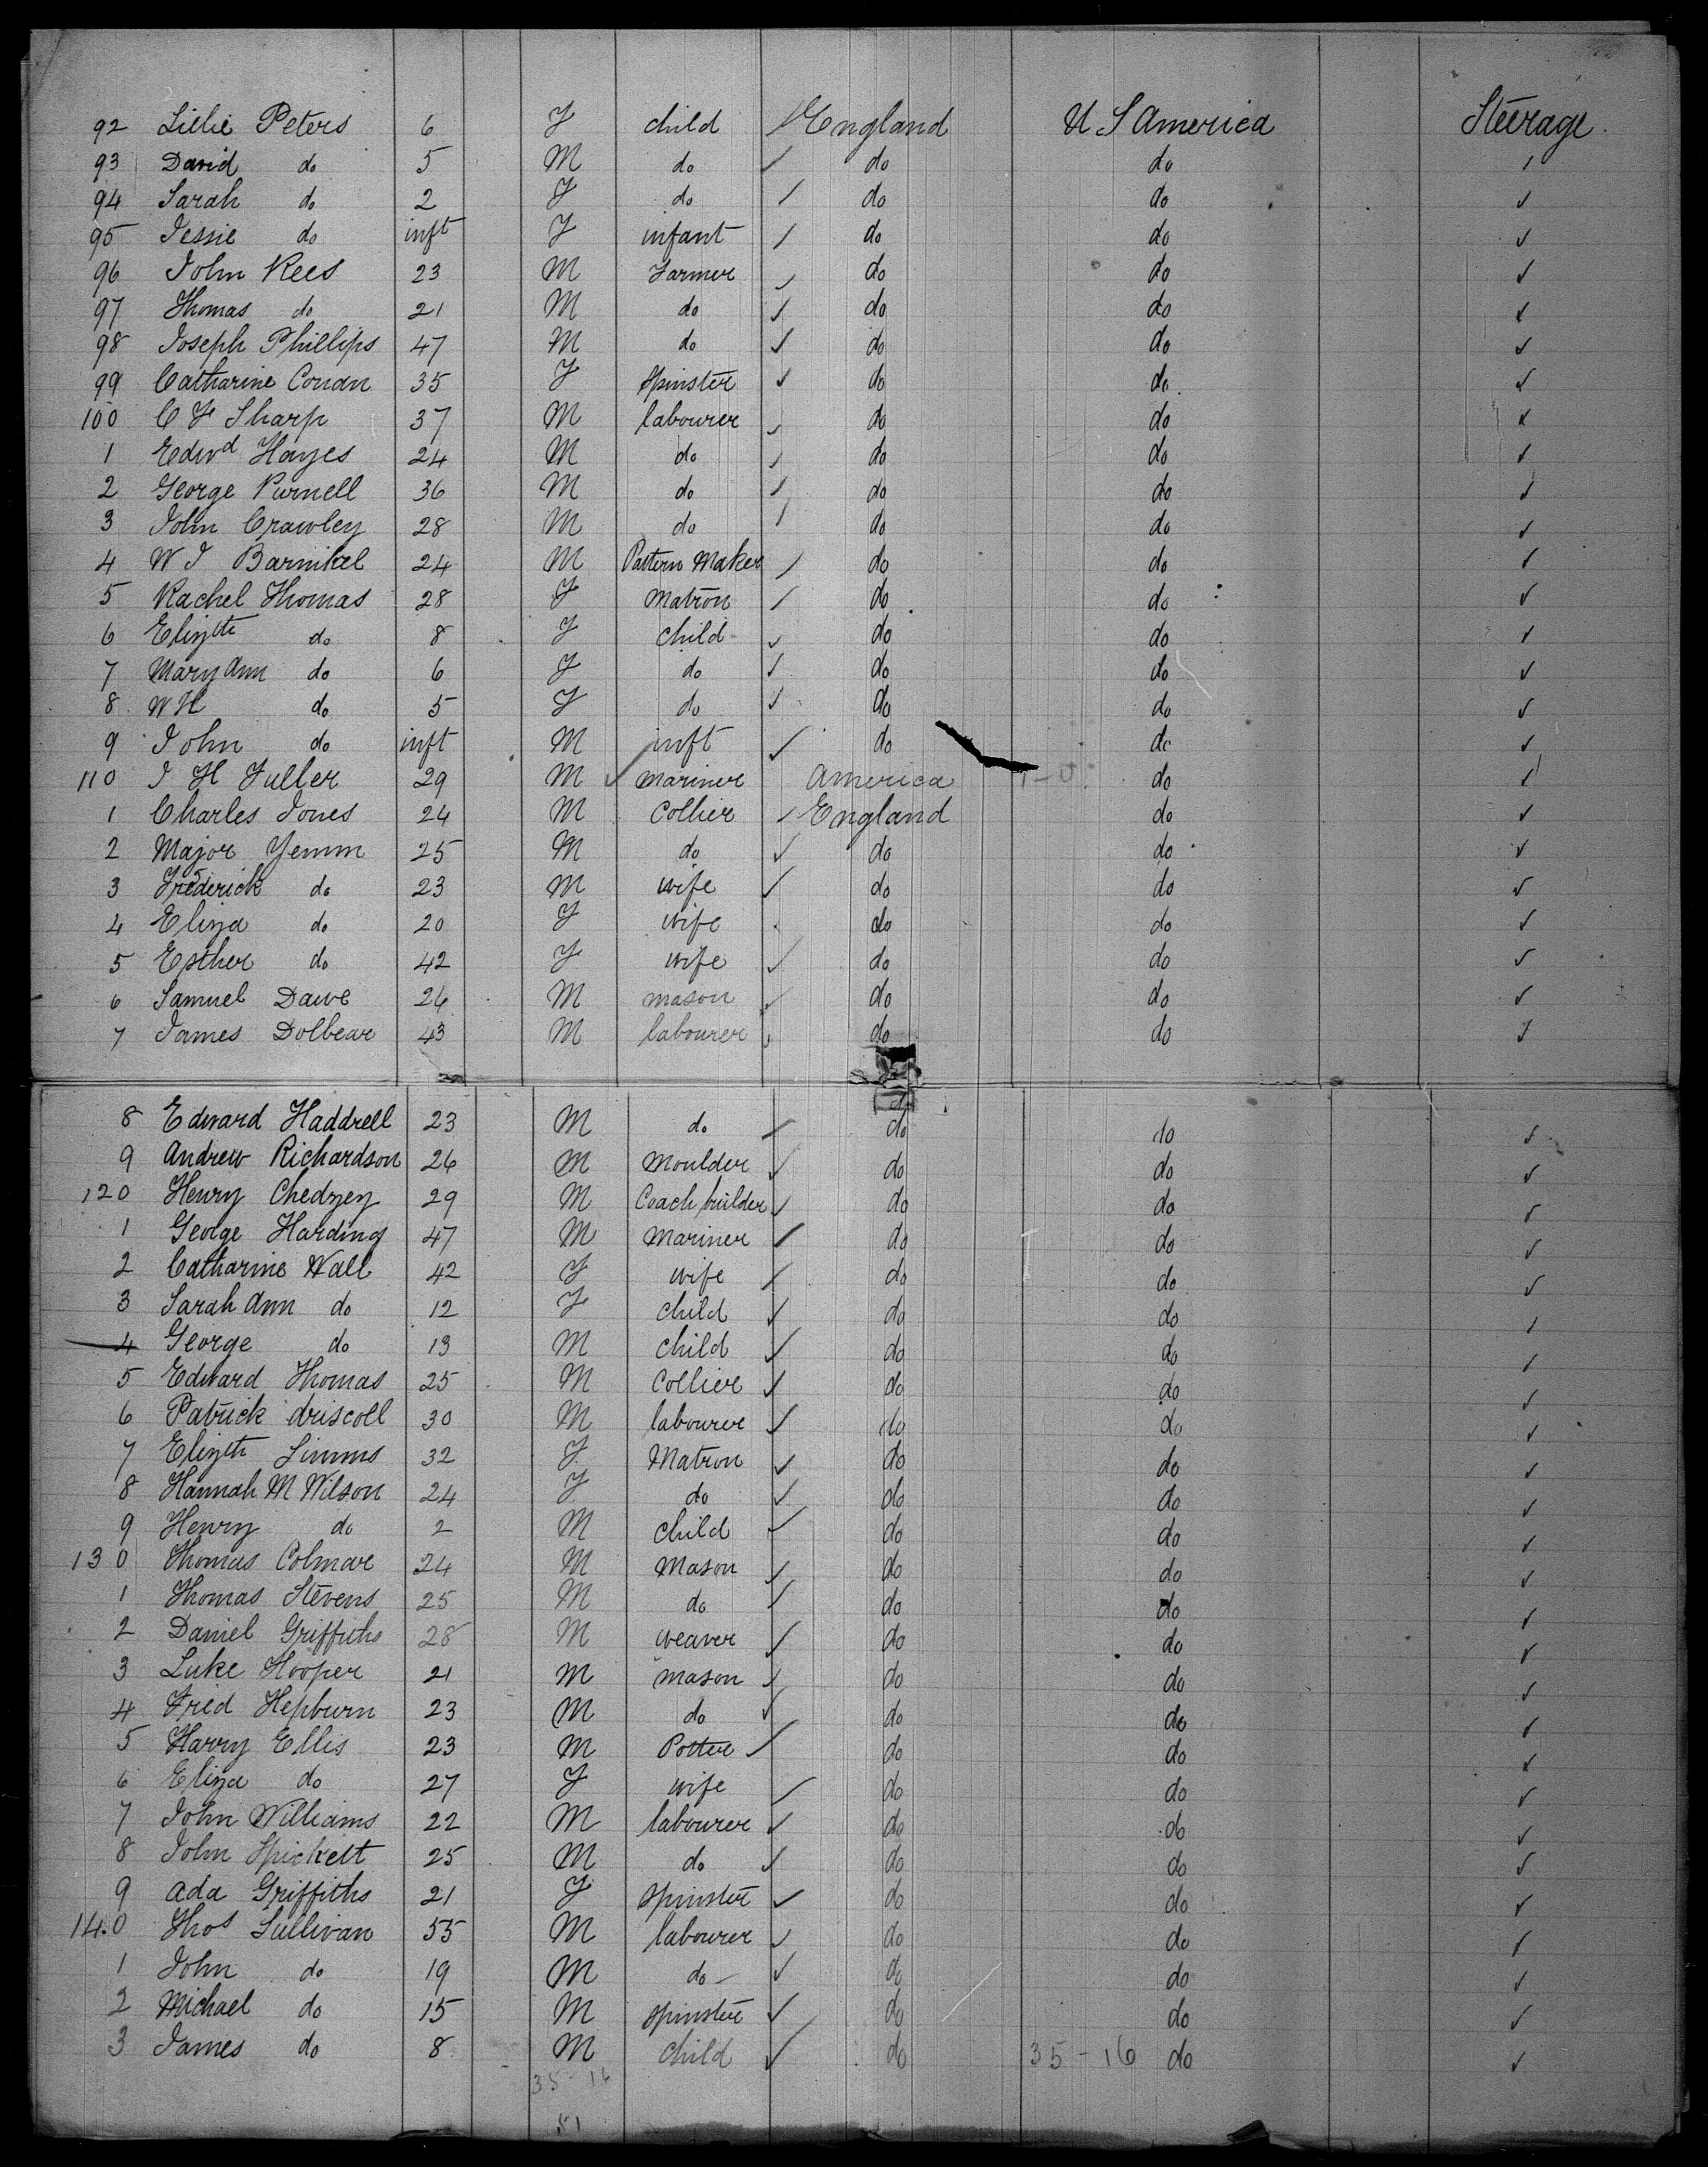 92 Lillie Peters 6 F child England U S America Steerage
93 David do 5 M do do do
94 Sarah do 2 F do do do
95 Jessie do inft F infant do do
96 John Rees 23 M Farmer do do
97 Thomas do 21 M do do do
98 Joseph Phillips 47 M do do do
99 Catharine Conan 35 F Spinster do do
100 C F Sharp 37 M labourer do do
1 Edwd Hayes 24 M do do do
2 George Purnell 36 M do do do
3 John Crawley 28 M do do do
4 W J Barnikel 24 M Pattern Maker do do
5 Rachel Thomas 28 F Matron do do
6 Elizth do 8 F child do do
7 Mary Ann do 6 F do do do
8 W H do 5 F do do do
9 John do inft M inft do do
110 J H Fuller 29 M mariner America 1-0 do
1 Charles Jones 24 M Collier England do
2 Major Yemm 25 M do do do
3 Frederick do 23 M wife do do
4 Eliza do 20 F wife do do
5 Esther do 42 F wife do do
6 Samuel Dawe 26 M mason do do
7 James Dolbear 43 M labourer do do
8 Edward Haddrell 23 M do do do
9 Andrew Richardson 26 M Moulder do do
120 Henry Chedzey 29 M Coach builder do do
1 George Harding 47 M Mariner do do
2 Catharine Wall 42 F wife do do
3 Sarah Ann do 12 F child do do
4 George do 13 M child do do
5 Edward Thomas 25 M Collier do do
6 Patrick driscoll 30 M labourer do do
7 Elizth Simms 32 F Matron do do
8 Hannah M Wilson 24 F do do do
9 Henry do 2 M child do do
130 Thomas Colmar 24 M Mason do do
1 Thomas Stevens 25 M do do do
2 Daniel Griffiths 28 M weaver do do
3 Luke Hooper 21 M mason do do
4 Fried Hepburn 23 M do do do
5 Harry Ellis 23 M Potter do do
6 Eliza do 27 F wife do do
7 John Williams 22 M labourer do do
8 John Spickett 25 M do do do
9 Ada Griffiths 21 F Spinster do do
140 Thos Sullivan 55 M labourer do do
1 John do 19 M do do do
2 Michael do 15 M Spinster do do
3 James do 8 M child do 35-16 do
35-16
51